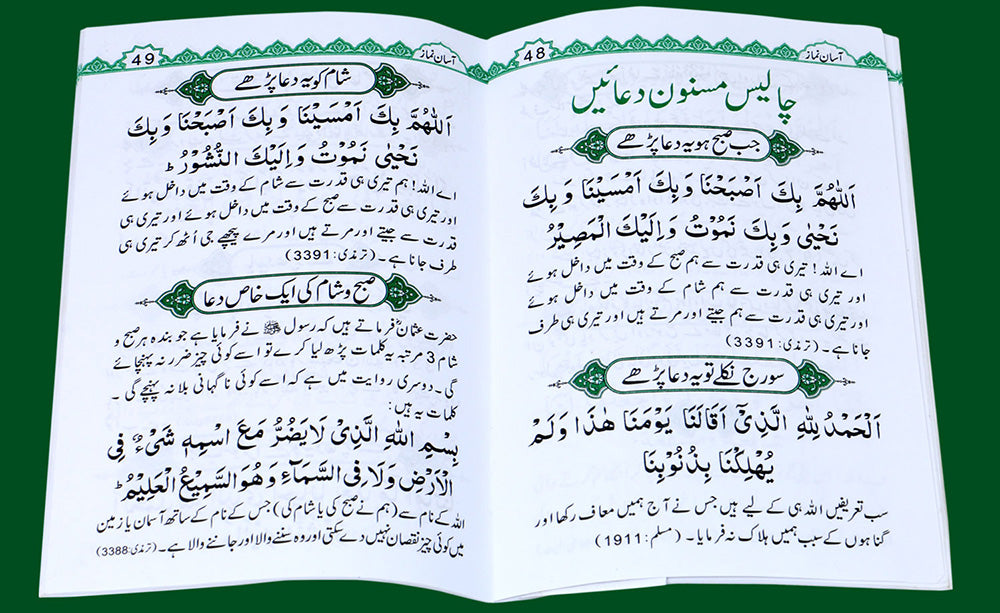 آسان نماز
48
چالیس مسنون دعائیں
جب صبح ہو یہ دعا پڑھے
اَللّٰهُمَّ بِكَ اَصْبَحْنَا وَبِكَ اَمْسَيْنَا وَبِكَ
نَحْيٰى وَبِكَ نَمُوْتُ وَاِلَيْكَ الْمَصِيْرُ
اے اللہ! تیری ہی قدرت سے ہم صبح کے وقت میں داخل ہوئے
اور تیری ہی قدرت سے ہم شام کے وقت میں داخل ہوئے
اور تیری ہی قدرت سے ہم جیتے اور مرتے ہیں اور تیری ہی طرف
جانا ہے۔ (ترمذی: 3391)
سورج نکلے تو یہ دعا پڑھے
اَلْحَمْدُ لِلّٰهِ الَّذِيْٓ اَقَالَنَا يَوْمَنَا هٰذَا وَلَمْ
يُهْلِكْنَا بِذُنُوْبِنَا
سب تعریفیں اللہ ہی کے لیے ہیں جس نے آج ہمیں معاف رکھا اور
گناہوں کے سبب ہمیں ہلاک نہ فرمایا۔ (مسلم: 1911)
آسان نماز
49
شام کو یہ دعا پڑھے
اَللّٰهُمَّ بِكَ اَمْسَيْنَا وَبِكَ اَصْبَحْنَا وَبِكَ
نَحْيٰى نَمُوْتُ وَاِلَيْكَ النُّشُوْرُ ط
اے اللہ! ہم تیری ہی قدرت سے شام کے وقت میں داخل ہوئے
اور تیری ہی قدرت سے صبح کے وقت میں داخل ہوئے اور تیری ہی
قدرت سے جیتے اور مرتے ہیں اور مرے پیچھے جی اُٹھ کر تیری ہی
طرف جانا ہے۔ (ترمذی: 3391)
صبح و شام کی ایک خاص دعا
حضرت عثمانؓ فرماتے ہیں کہ رسول ﷺ نے فرمایا ہے جو بندہ ہر صبح و
شام 3 مرتبہ یہ کلمات پڑھ لیا کرے تو اسے کوئی چیز ضرر نہ پہنچائے
گی۔ دوسری روایت میں ہے کہ اسے کوئی ناگہانی بلا نہ پہنچے گی۔
کلمات یہ ہیں:
بِسْمِ اللّٰهِ الَّذِيْ لَا يَضُرُّ مَعَ اسْمِهٖ شَيْءٌ فِي
الْاَرْضِ وَلَا فِي السَّمَآءِ وَهُوَ السَّمِيْعُ الْعَلِيْمُ ط
اللہ کے نام سے (ہم نے صبح کی یا شام کی) جس کے نام کے ساتھ آسمان یا زمین
میں کوئی چیز نقصان نہیں دے سکتی اور وہ سننے والا اور جاننے والا ہے۔ (ترمذی: 3388)